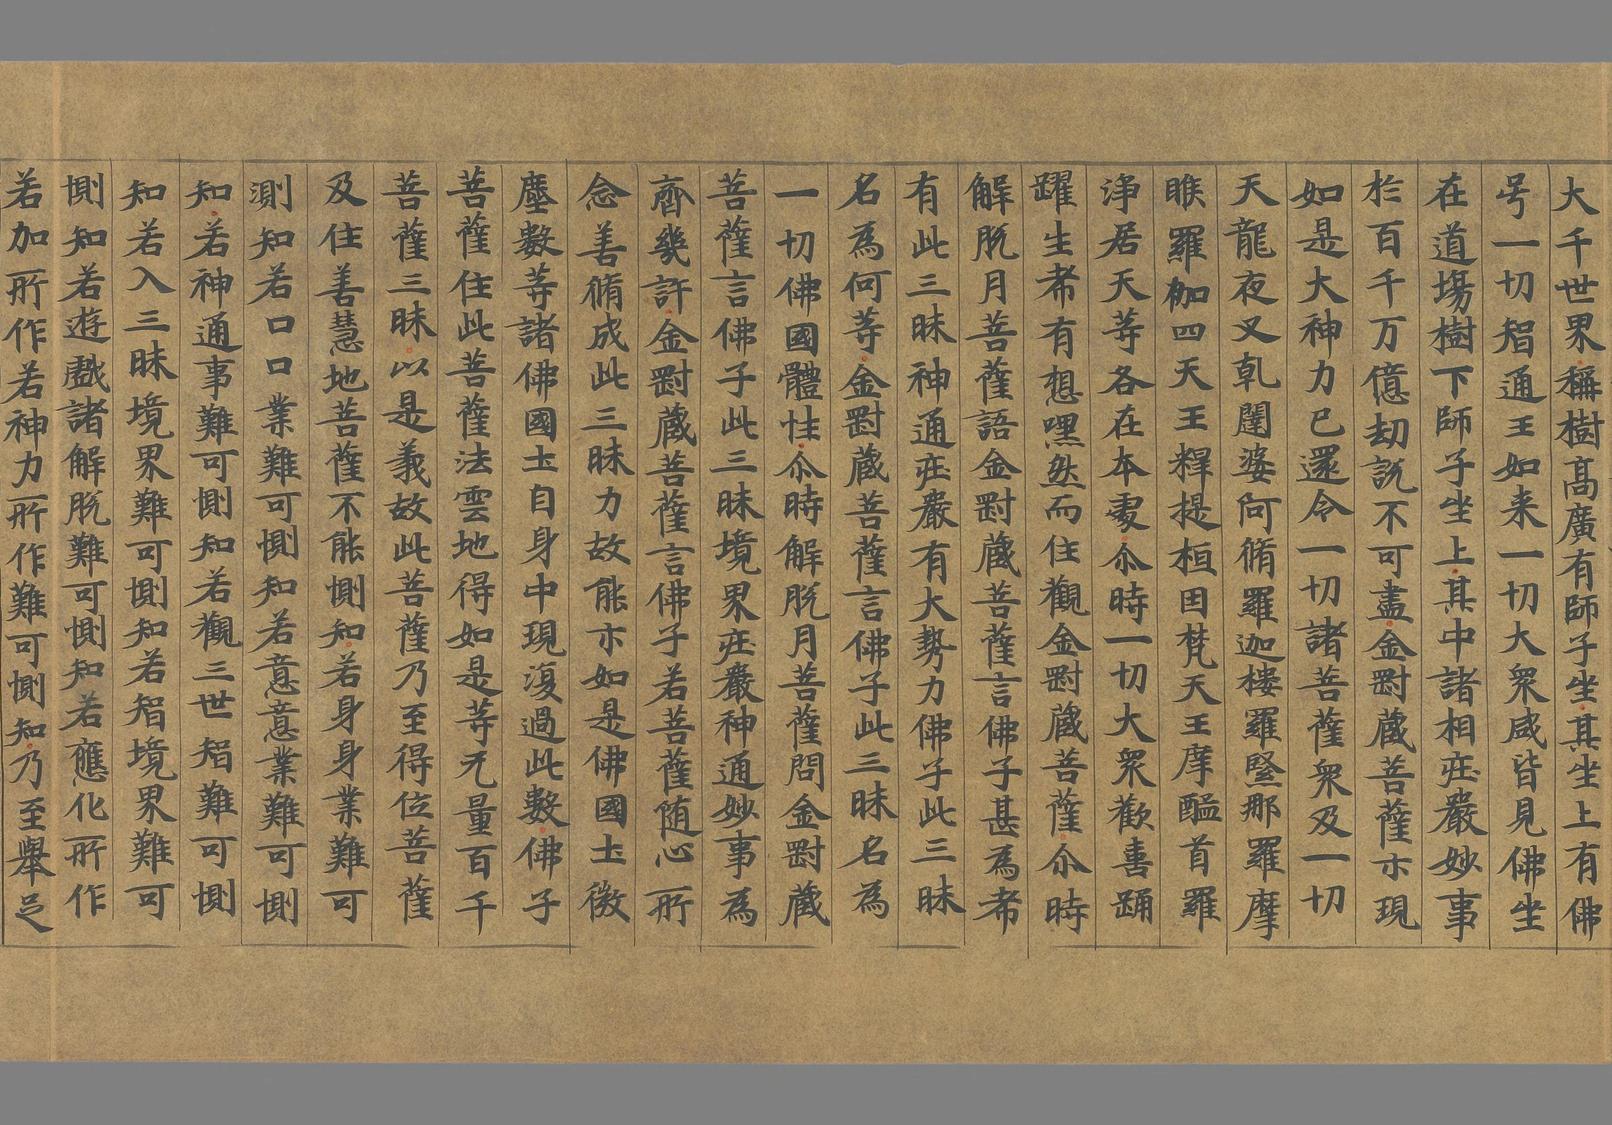 大千世界稱樹髙廣有師子坐其坐上有佛
号一切智通王如来一切大衆咸皆見佛坐
在道場樹下師子坐上其中諸相莊嚴妙事
扵百千万億劫説不可盡金罰蔵菩薩示現
如是大神力已還令一切諸菩薩衆及一切
天龍夜叉乹闥婆阿脩羅迦樓羅緊那羅摩
睺羅伽四天王釋提桓因梵天王摩醯首羅
淨居天等各在本處尒時一切大衆歡喜踊
躍生希有想嘿然而住觀金罰蔵菩薩尒時
解脱月菩薩語金罰蔵菩薩言佛子甚為希
有此三昧神通莊嚴有大勢力佛子此三昧
名為何等金罰蔵菩薩言佛子此三昧名為
一切佛國體性尒時解脱月菩薩問金罰蔵
菩薩言佛子此三昧境界莊嚴神通妙事為
齊幾許金罰蔵菩薩言佛子若菩薩随心所
念善脩成此三昧力故能示如是佛國圡微
塵數等諸佛國圡自身中現復過此數佛子
菩薩住此菩薩法雲地得如是等无量百千
菩薩三昧以是義故此菩薩乃至得位菩薩
及住善慧地菩薩不能惻知若身身業難可
測知若口口業難可惻知若意意業難可惻
知若神通事難可惻知若觀三世智難可惻
知若入三昧境界難可惻知若智境界難可
惻知若遊戲諸解脱難可惻知若應化所作
若加所作若神力所作難可惻知乃至舉足